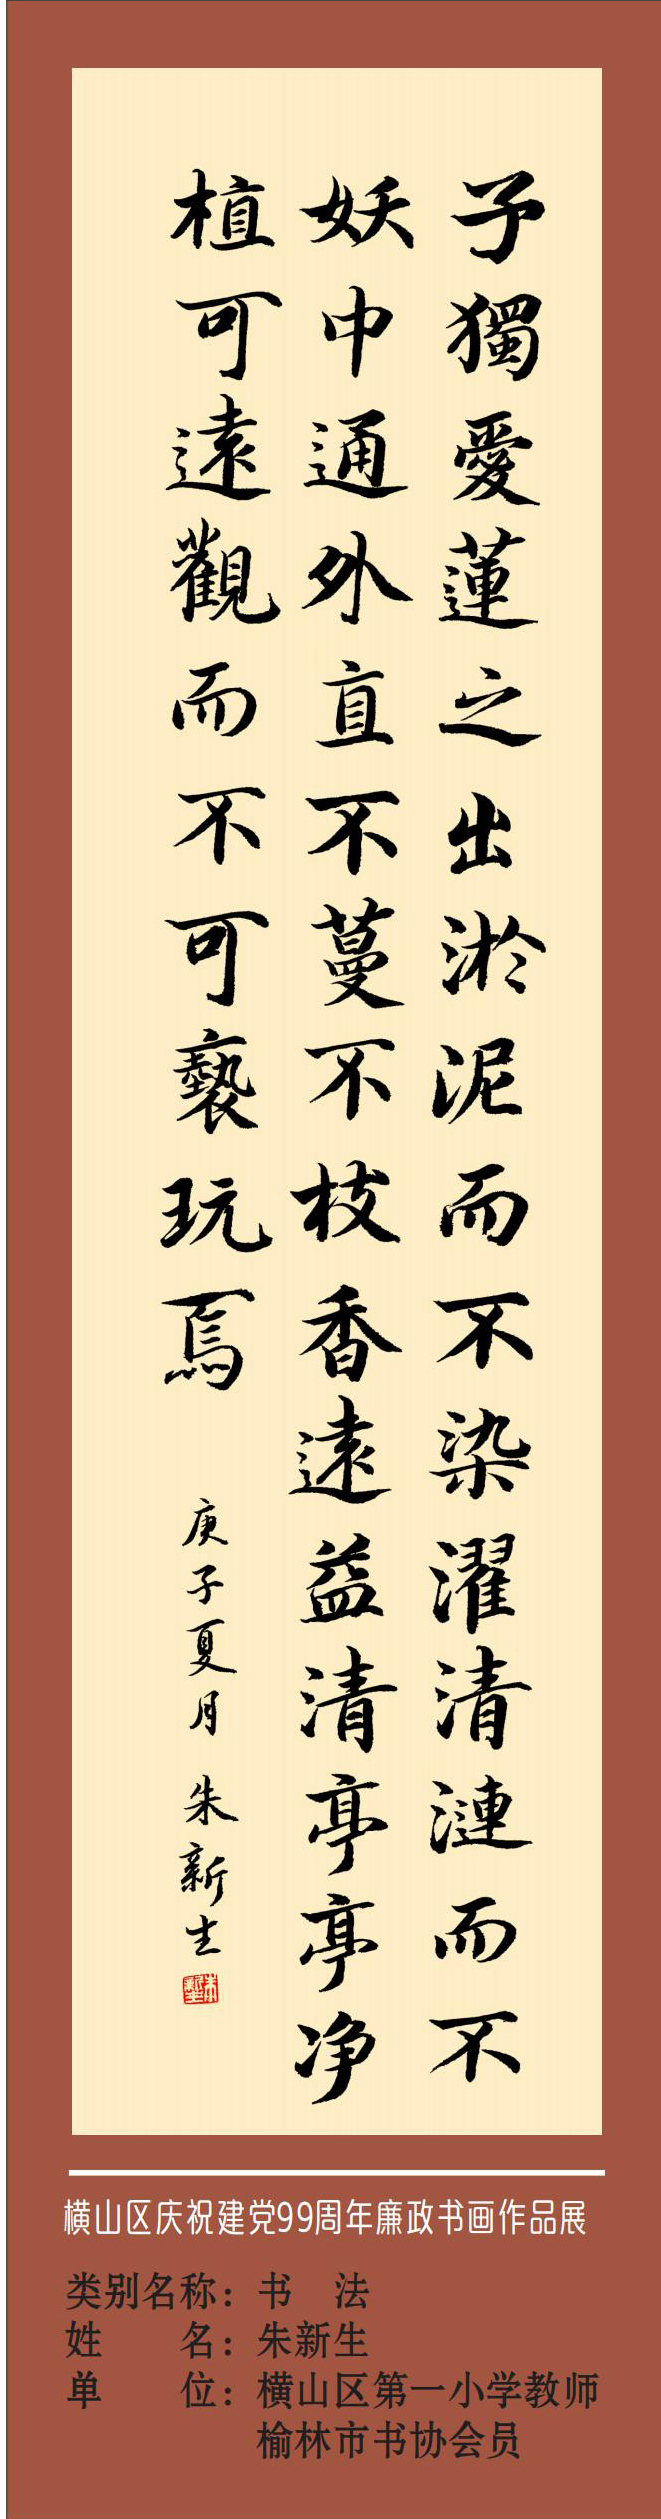 予獨愛蓮之出淤泥而不染濯清漣而不
妖中通外直不蔓不枝香遠益清亭亭净
植可遠觀而不可褻玩焉
庚子夏月 朱新生
横山区庆祝建党99周年廉政书画作品展
类别名称：书 法
姓 名：朱新生
单 位：横山区第一小学教师
榆林市书协会员